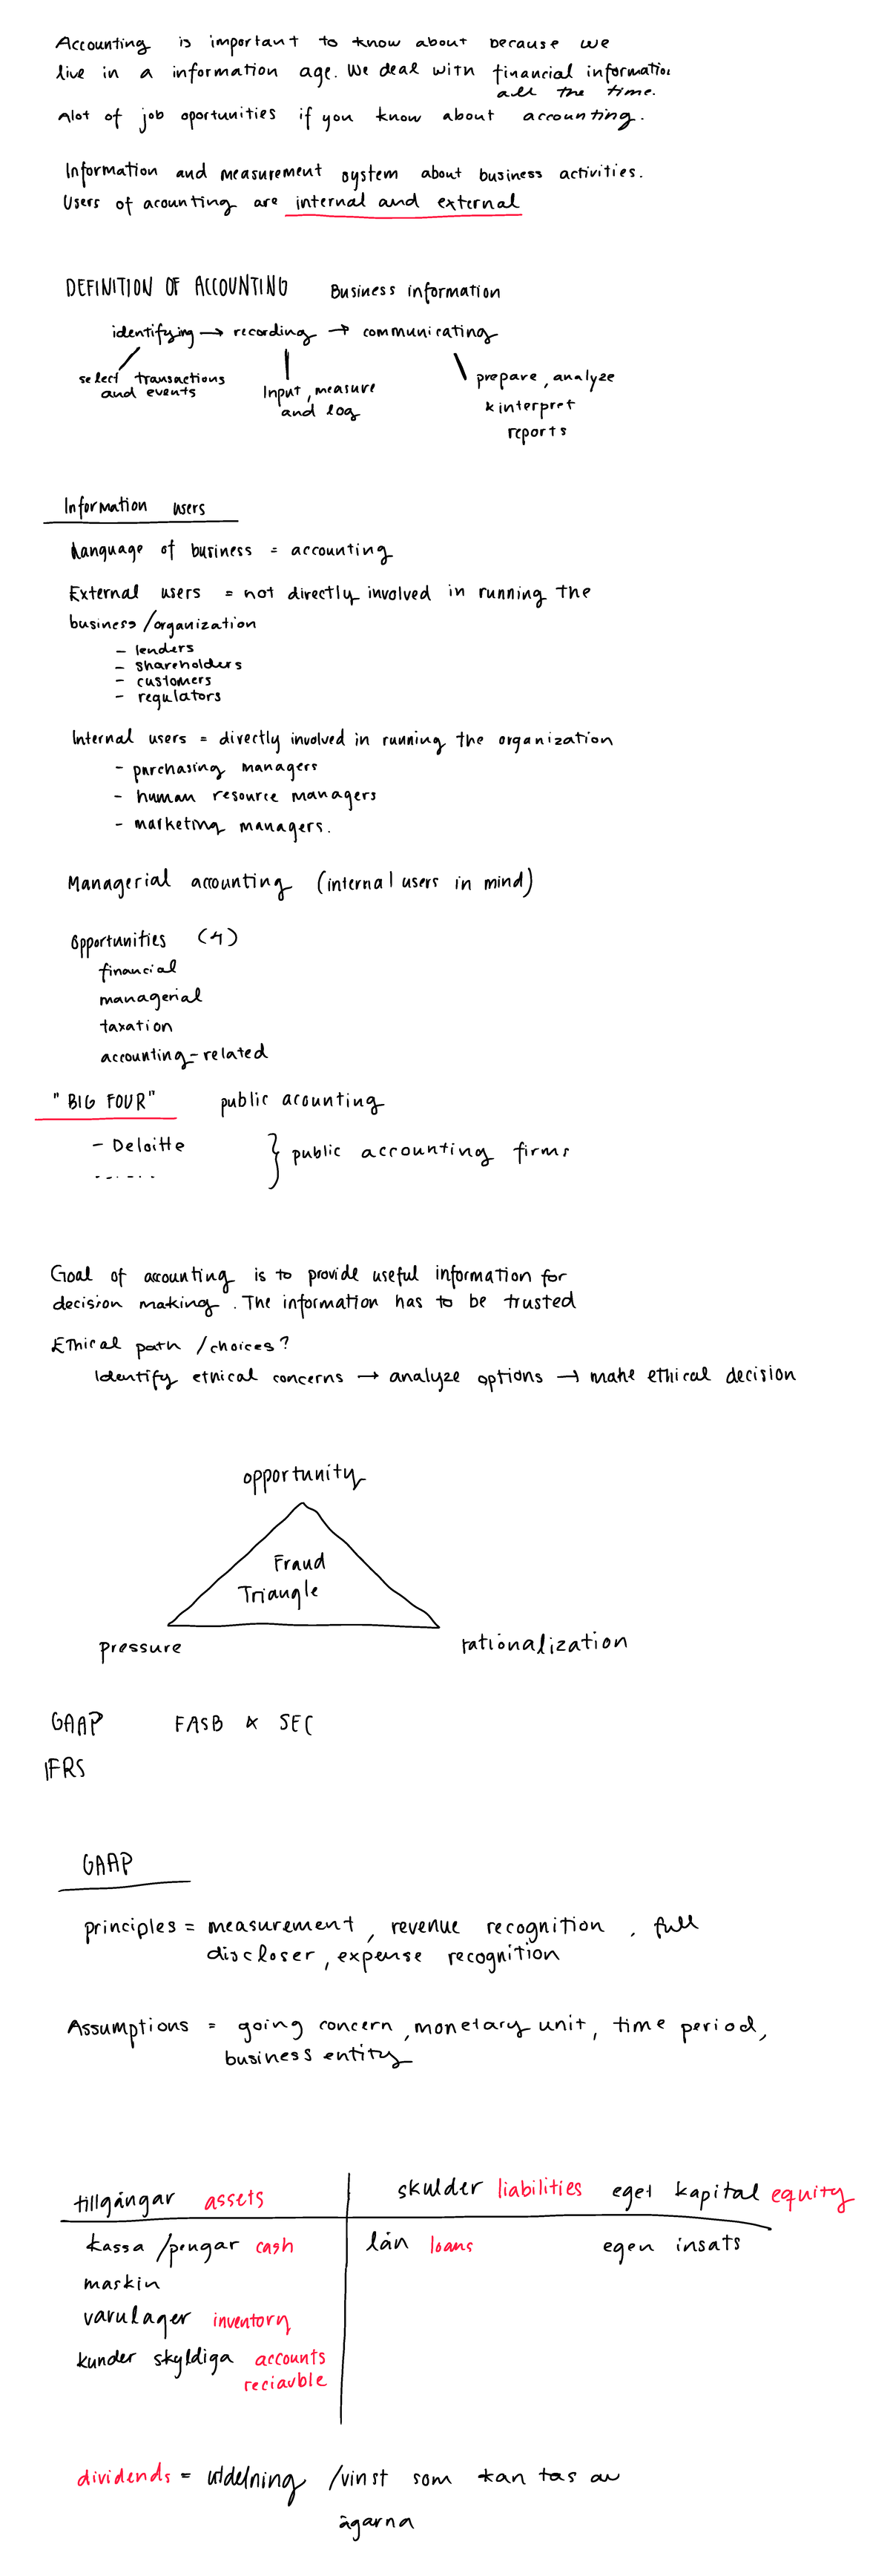 Accounting is important to know about because we
live in a information age. We deal with financial information
all the time.
Alot of job oportunities if you know about accounting.
Information and measurement system about business activities.
Users of acounting are internal and external
DEFINITION OF ACCOUNTING Business information
identifying → recording → communicating
select transactions
and events
Input, measure
and log
prepare, analyze
& interpret
reports
Information users
Language of business = accounting
External users = not directly involved in running the
business/organization
- lenders
- shareholders
- customers
- regulators
Internal users = directly involved in running the organization
- purchasing managers
- human resource managers
- marketing managers.
Managerial accounting (internal users in mind)
Opportunities (4)
financial
managerial
taxation
accounting-related
"BIG FOUR" public acounting
- Deloitte
------
} public accounting firms
Goal of accounting is to provide useful information for
decision making. The information has to be trusted
Ethical path / choices?
Identify ethical concerns → analyze options → make ethical decision
opportunity
Fraud
Triangle
pressure
rationalization
GAAP FASB & SEC
IFRS
GAAP
principles = measurement, revenue recognition, full
discloser, expense recognition
Assumptions = going concern, monetary unit, time period,
business entity
tillgångar assets skulder liabilities eget kapital equity
kassa/pengar cash lån loans egen insats
maskin
varulager inventory
kunder skyldiga accounts
reciavble
dividends = utdelning /vinst som kan tas av
ägarna